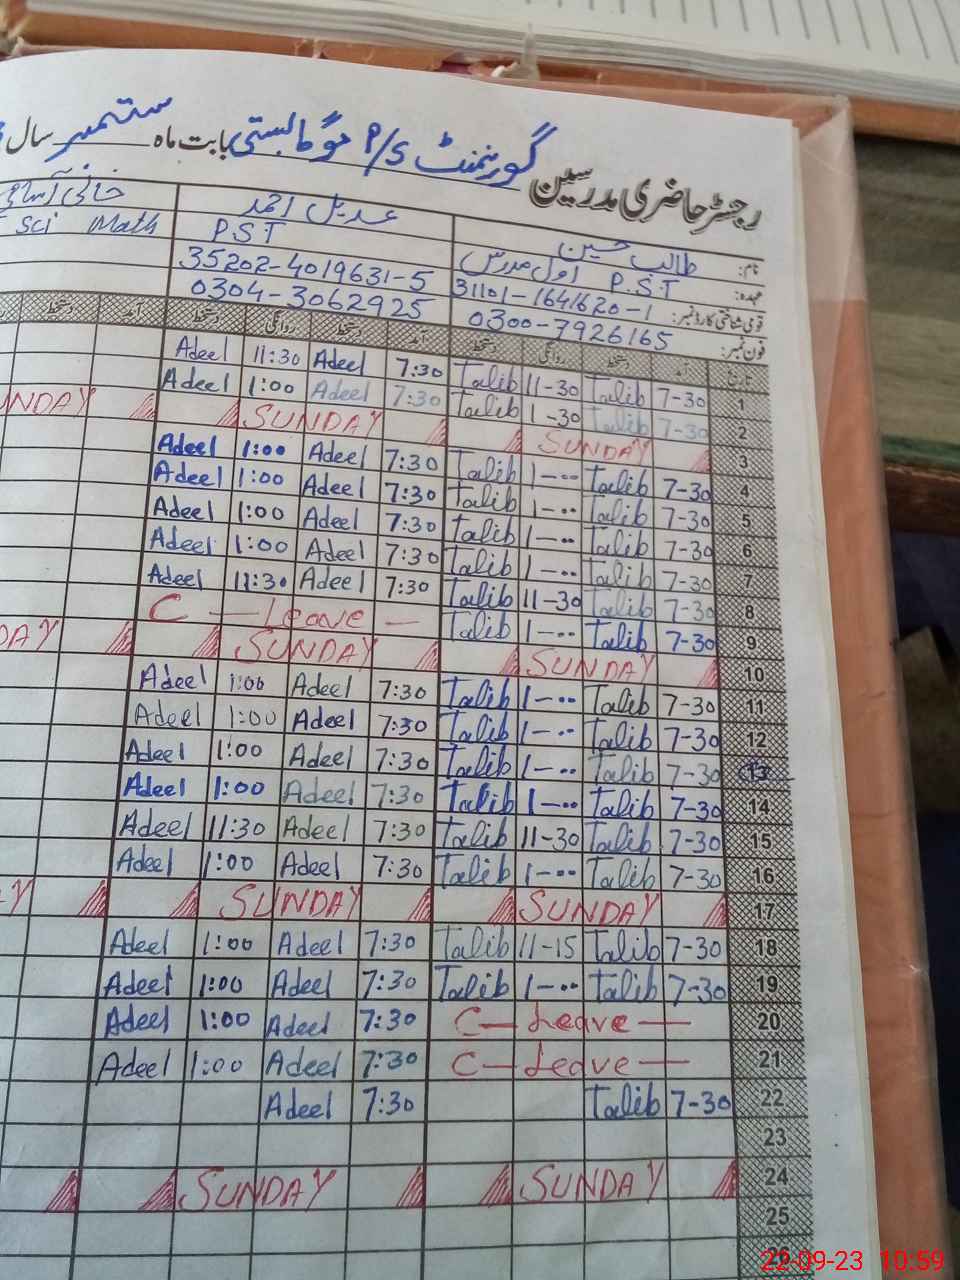 رجسٹر حاضری مدرسین گورنمنٹ P/S موگا بستی بابت ماہ ستمبر سال
نام: طالب حسین عدیل احمد خالی آسامی
عہدہ: اول مدرس P.S.T PST Sci Math
قومی شناختی کارڈ نمبر: 31101-1641620-1 35202-4019631-5
فون نمبر: 0300-7926165 0304-3062925
تاریخ آمد دستخط روانگی دستخط آمد دستخط روانگی دستخط آمد دستخط
1 7-30 Talib 11-30 Talib 7:30 Adeel 11:30 Adeel
2 7-30 Talib 1-30 Talib 7:30 Adeel 1:00 Adeel
3 SUNDAY SUNDAY SUNDAY
4 7-30 Talib 1-00 Talib 7:30 Adeel 1:00 Adeel
5 7-30 Talib 1-00 Talib 7:30 Adeel 1:00 Adeel
6 7-30 Talib 1-00 Talib 7:30 Adeel 1:00 Adeel
7 7-30 Talib 1-00 Talib 7:30 Adeel 1:00 Adeel
8 7-30 Talib 11-30 Talib 7:30 Adeel 11:30 Adeel
9 7-30 Talib 1-00 Talib C — Leave —
10 SUNDAY SUNDAY DAY
11 7-30 Talib 1-00 Talib 7:30 Adeel 1:00 Adeel
12 7-30 Talib 1-00 Talib 7:30 Adeel 1:00 Adeel
13 7-30 Talib 1-00 Talib 7:30 Adeel 1:00 Adeel
14 7-30 Talib 1-00 Talib 7:30 Adeel 1:00 Adeel
15 7-30 Talib 11-30 Talib 7:30 Adeel 11:30 Adeel
16 7-30 Talib 1-00 Talib 7:30 Adeel 1:00 Adeel
17 SUNDAY SUNDAY Y
18 7-30 Talib 11-15 Talib 7:30 Adeel 1:00 Adeel
19 7-30 Talib 1-00 Talib 7:30 Adeel 1:00 Adeel
20 C — Leave — 7:30 Adeel 1:00 Adeel
21 C — Leave — 7:30 Adeel 1:00 Adeel
22 7-30 Talib 7:30 Adeel
23
24 SUNDAY SUNDAY
25
22-09-23 10:59